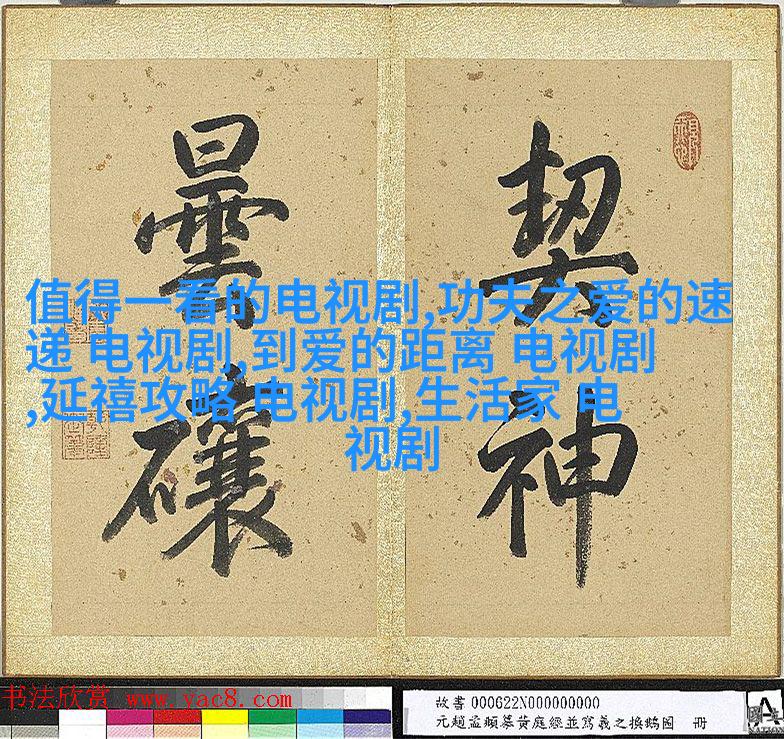 契神
曇
值得一看的电视剧,功夫之爱的速
递 电视剧,到爱的距离 电视剧
,延禧攻略 电视剧,生活家 电
视剧
书法欣赏 www.yac8.com
故書000622N000000000
元趙孟頫黃庭經並寫羲之換鵝圖 冊